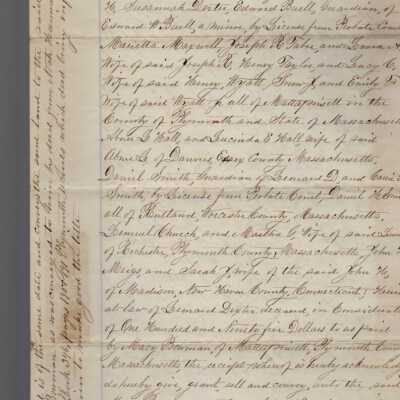 H. Susannah Dexter, Edward Buell, Guardian, of
Edward W. Buell, a minor, by License from Probate Court
Marietta Maxwell, Joseph R. Taber, and
Wife of said Joseph R. Henry Taylor, and Lucy C.
Wife of said Henry, Wyatt Snow, and Emily
Wife of said Wyatt, all of Mattapoisett in the
County of Plymouth and State of Massachusetts
Hall, and Lucinda E. Hall, wife of said
of Danvers Essex County Massachusetts,
Daniel Smith, Guardian of Leonard D. and
Smith, by License from Probate Court, Daniel H.
all of Rutland, Worcester County, Massachusetts,
Lemuel Church, and Martha G. Wife of said
of Rochester, Plymouth County, Massachusetts, John
Meigs and Sarah J. wife of the said John H.
of Madison, New Haven County, Connecticut,
at law of Leonard Dexter, deceased, in Consideration
of One Hundred and Ninety five Dollars to us paid
by Mary Bowman, of Mattapoisett, Plymouth
Massachusetts, the receipt whereof is hereby acknowledged
do hereby give, grant, sell and convey, unto the said
is of the same date and conveys the same land to the
Bowman as was conveyed to him by deed from
pages 170 & 171 Plymouth
to make good the title